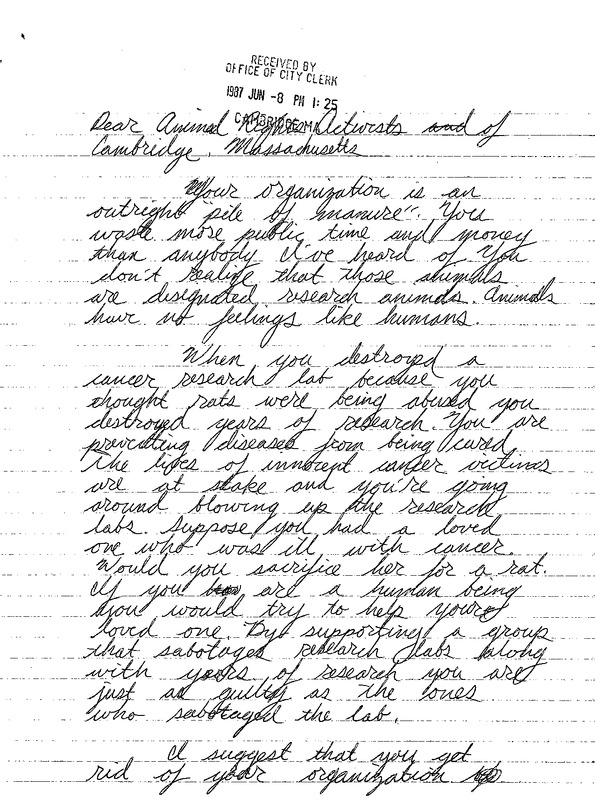 RECEIVED BY
OFFICE OF CITY CLERK
1987 JUN -8 PM 1:25
CAMBRIDGE MA
Dear Animal Rights Activists and of
Cambridge, Massachusetts
Your organization is an
outright pile of "manure". You
waste more public time and money
than anybody I've heard of. You
don't realize that those animals
are designated research animals. Animals
have no feelings like humans.
When you destroyed a
cancer research lab because you
thought rats were being abused you
destroyed years of research. You are
preventing diseases from being cured
The lifes of innocent cancer victims
are at stake and you're going
around blowing up the research
labs. Suppose you had a loved
one who was ill, with cancer.
Would you sacrifice her for a rat.
If you are a human being
you would try to help your
loved one. By supporting a group
that sabotages research labs along
with years of research you are
just as guilty as the ones
who sabotaged the lab.
I suggest that you get
rid of your organization